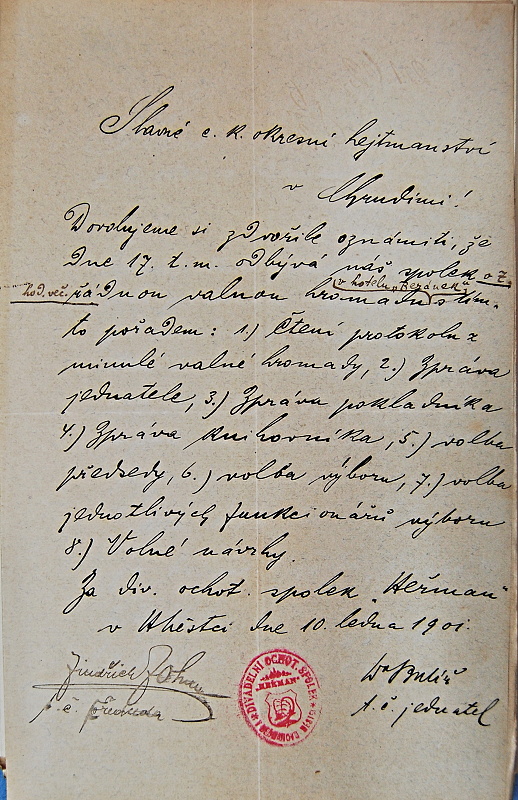 Slavné c. k. okresní hejtmanství
v Chrudimi!
Dovolujeme si zdvořile oznámiti, že
dne 17. t. m. odbývá náš spolek o 7.
hod. več. řádnou valnou hromadu (v hotelu „Beránek“) s tím-
to pořadem: 1.) Čtení protokolu z
minulé valné hromady, 2.) Zpráva
jednatele, 3.) Zpráva pokladníka
4.) Zpráva knihovníka, 5.) volba
předsedy, 6.) volba výboru, 7.) volba
jednotlivých funkcionářů výboru
8.) Volné návrhy.
Za div. ochot. spolek „Heřman“
v Městci dne 10. ledna 1901.
Jindřich
t. č. předseda
Dr
t. č. jednatel
DIVADELNÍ OCHOT. SPOLEK
„HEŘMAN“